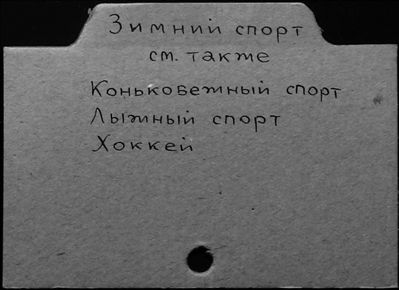 Зимний спорт
см. также
Конькобежный спорт
Лыжный спорт
Хоккей